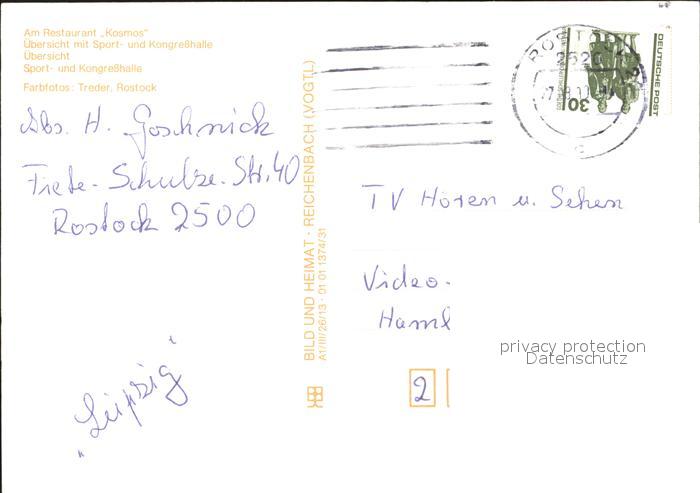 Am Restaurant „Kosmos"
Übersicht mit Sport- und Kongreßhalle
Übersicht
Sport- und Kongreßhalle
Farbfotos: Treder, Rostock
Abs. H. Goschnick
Fiete-Schulze-Str. 40
Rostock 2500
„Leipzig"
BILD UND HEIMAT · REICHENBACH (VOGTL)
A1/III/26/13 · 01 01 1374/31
ROSTOCK
2520
DEUTSCHE POST
30
TV Hören u. Sehen
Video-
privacy protection
Datenschutz
2